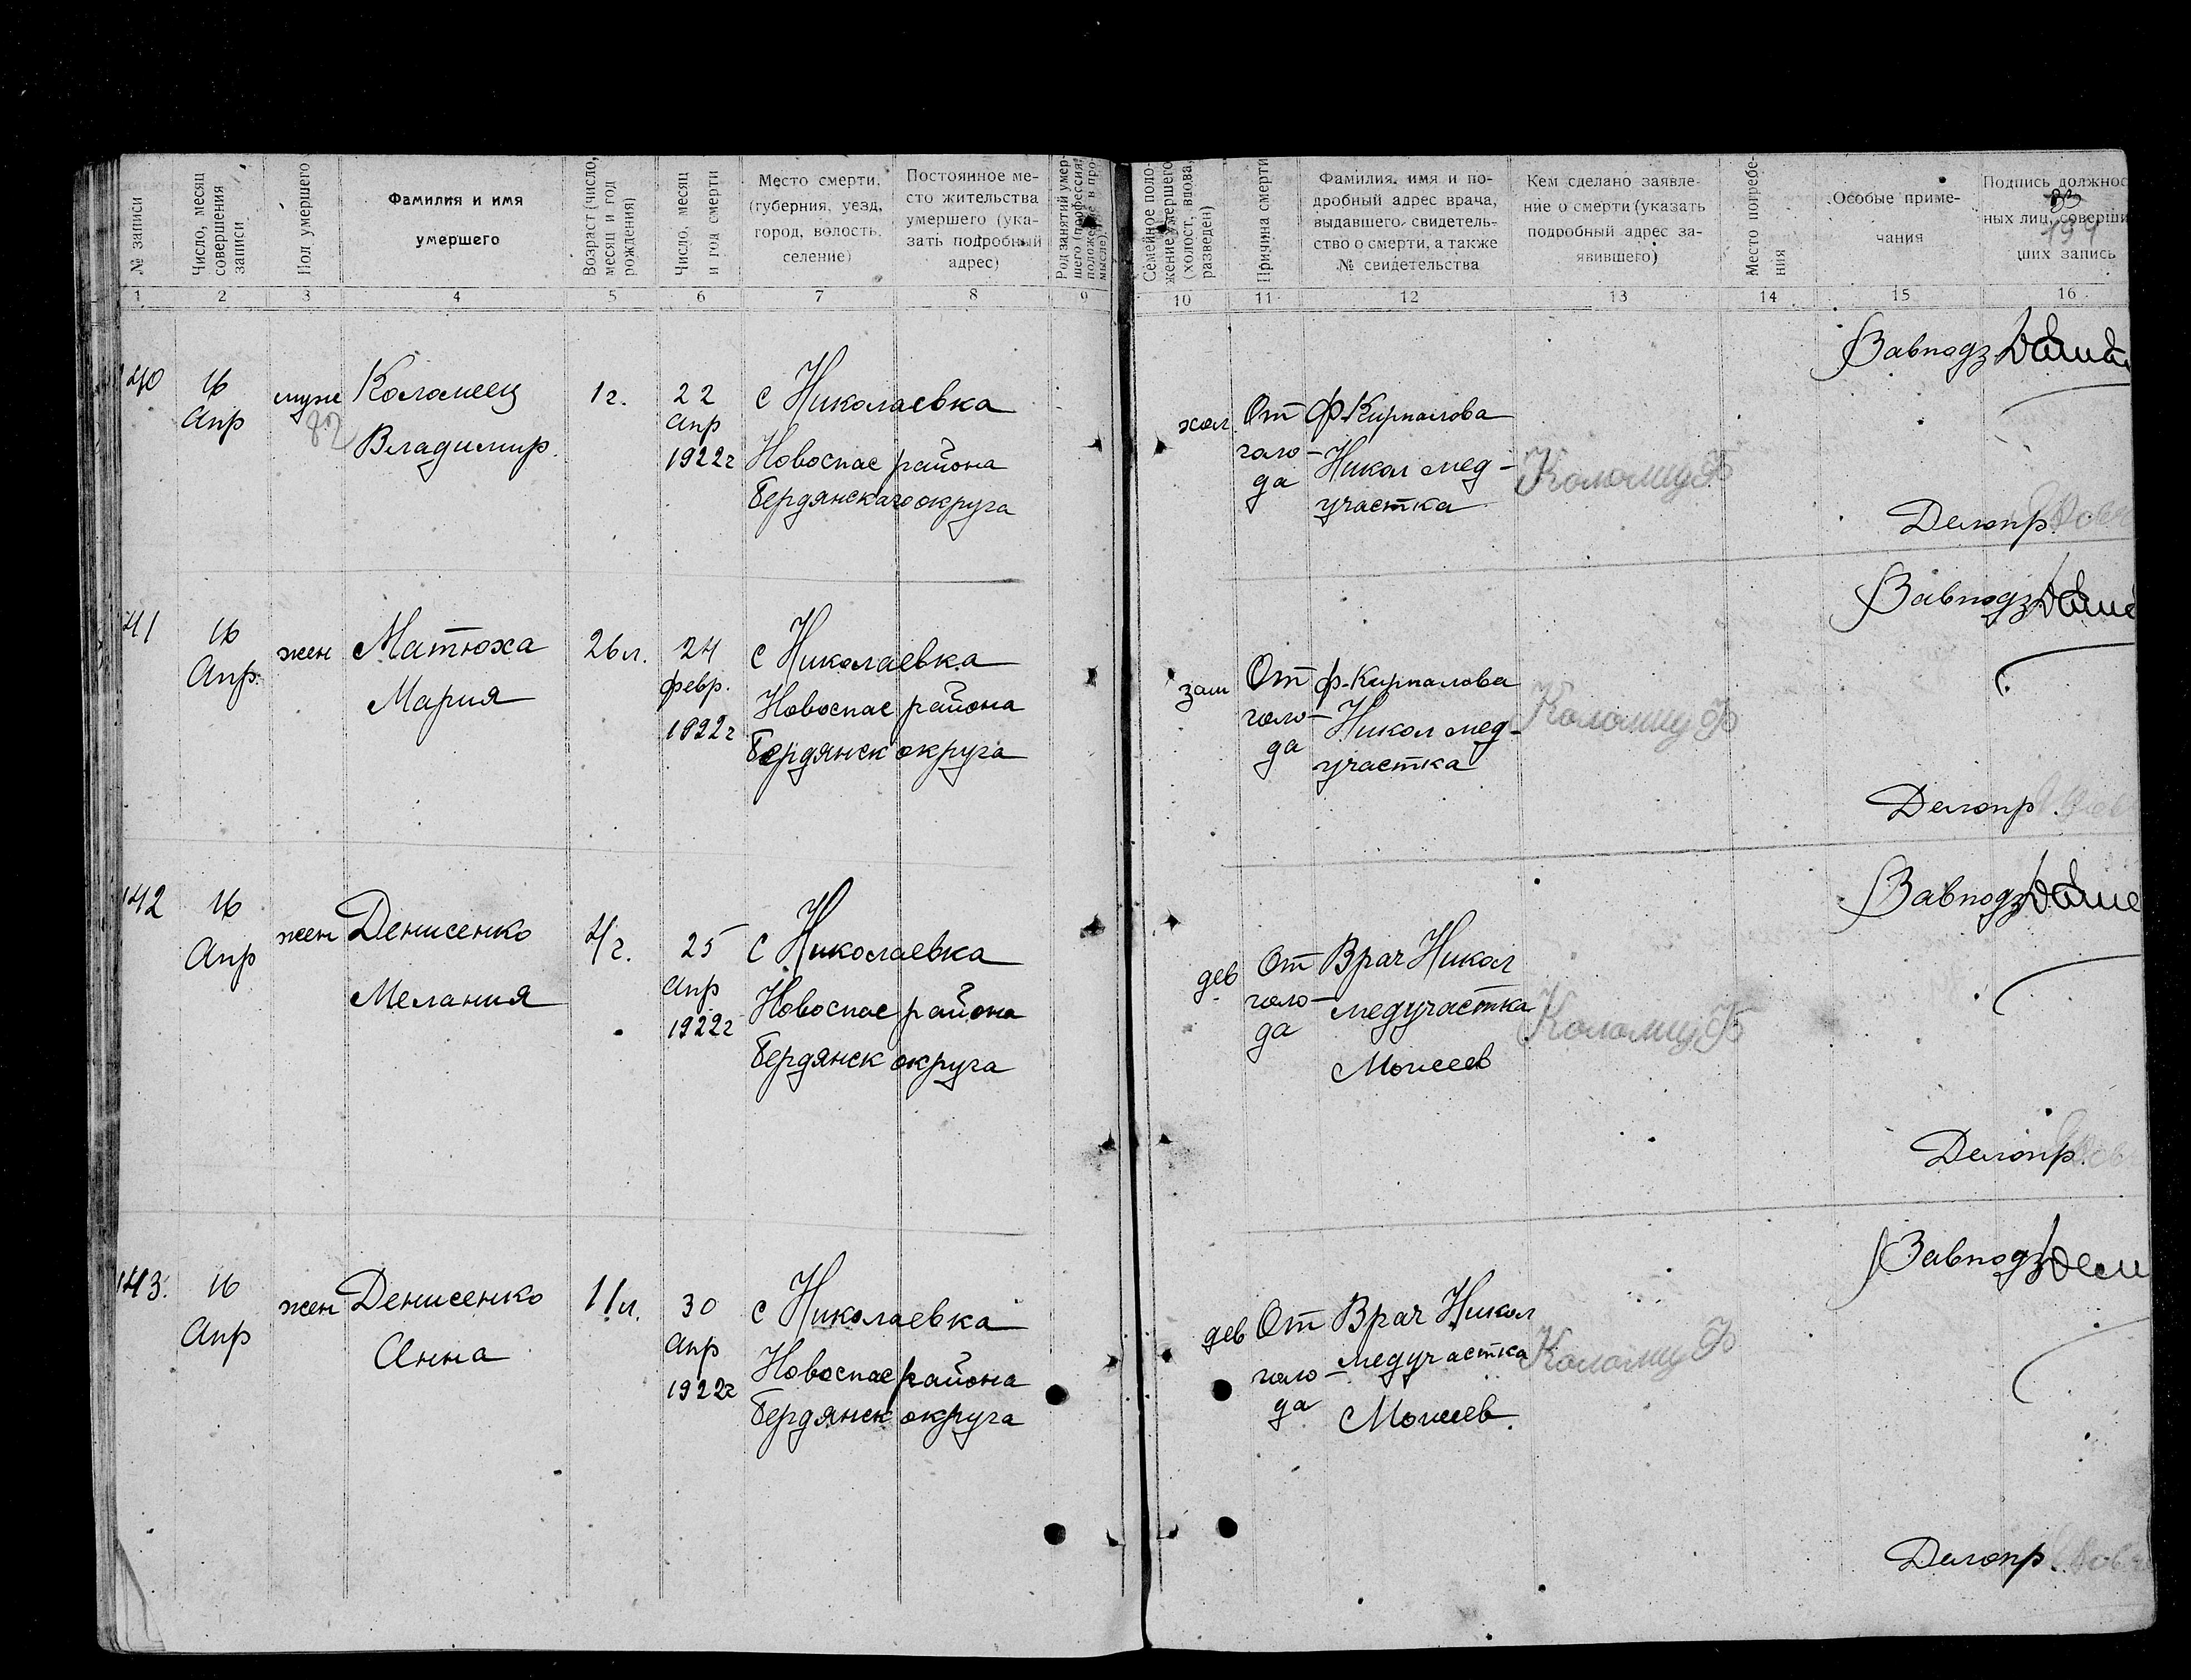 № записи
Число, месяц
совершения
записи
Пол умершего
Фамилия и имя
умершего
Возраст (число,
месяц и год
рождения)
Число, месяц
и год смерти
Место смерти,
(губерния, уезд,
город, волость,
селение)
Постоянное ме-
сто жительства
умершего (ука-
зать подробный
адрес)
Род занятий умер-
шего (профессия,
в про-
мысле)
Семейное поло-
жение умершего
(холост, вдова,
разведен)
Причина смерти
Фамилия, имя и по-
дробный адрес врача,
выдавшего свидетель-
ство о смерти, а также
№ свидетельства
Кем сделано заявле-
ние о смерти (указать
подробный адрес за-
явившего)
Место погребе-
ния
Особые приме-
чания
Подпись должнос
ных лиц, соверши
ших запись
83
194
1 2 3 4 5 6 7 8 9 10 11 12 13 14 15 16
140
16
Апр
муж
82
Коломеец
Владимир.
1 г.
22
Апр
1922г
с Николаевка
Новоспас района
Бердянскаго округа
хол.
От
голо-
да
Ф. Кирпалова
Никол мед-
участка
Коломиц Ф
Завподз
Делопр.
141
16
Апр.
жен
Матюха
Мария
26 л.
24
февр.
1922г
с Николаевка
Новоспас района
Бердянск округа
зам
От
голо-
да
ф. Кирпалова
Никол мед-
участка
Коломиц Ф
Завподз
Делопр.
142
16
Апр
жен
Денисенко
Мелания
4 г.
25
Апр
1922г
с Николаевка
Новоспас района
Бердянск округа
дев
От
голо-
да
Врач Никол
медучастка
Моисеев
Коломиц Ф
Завподз
Делопр.
143.
16
Апр
жен
Денисенко
Анна
11 л.
30
Апр
1922г
с Николаевка
Новоспас района
Бердянск округа
дев
От
голо-
да
Врач Никол
медучастка
Моисеев.
Коломиц Ф
Завподз
Делопр.